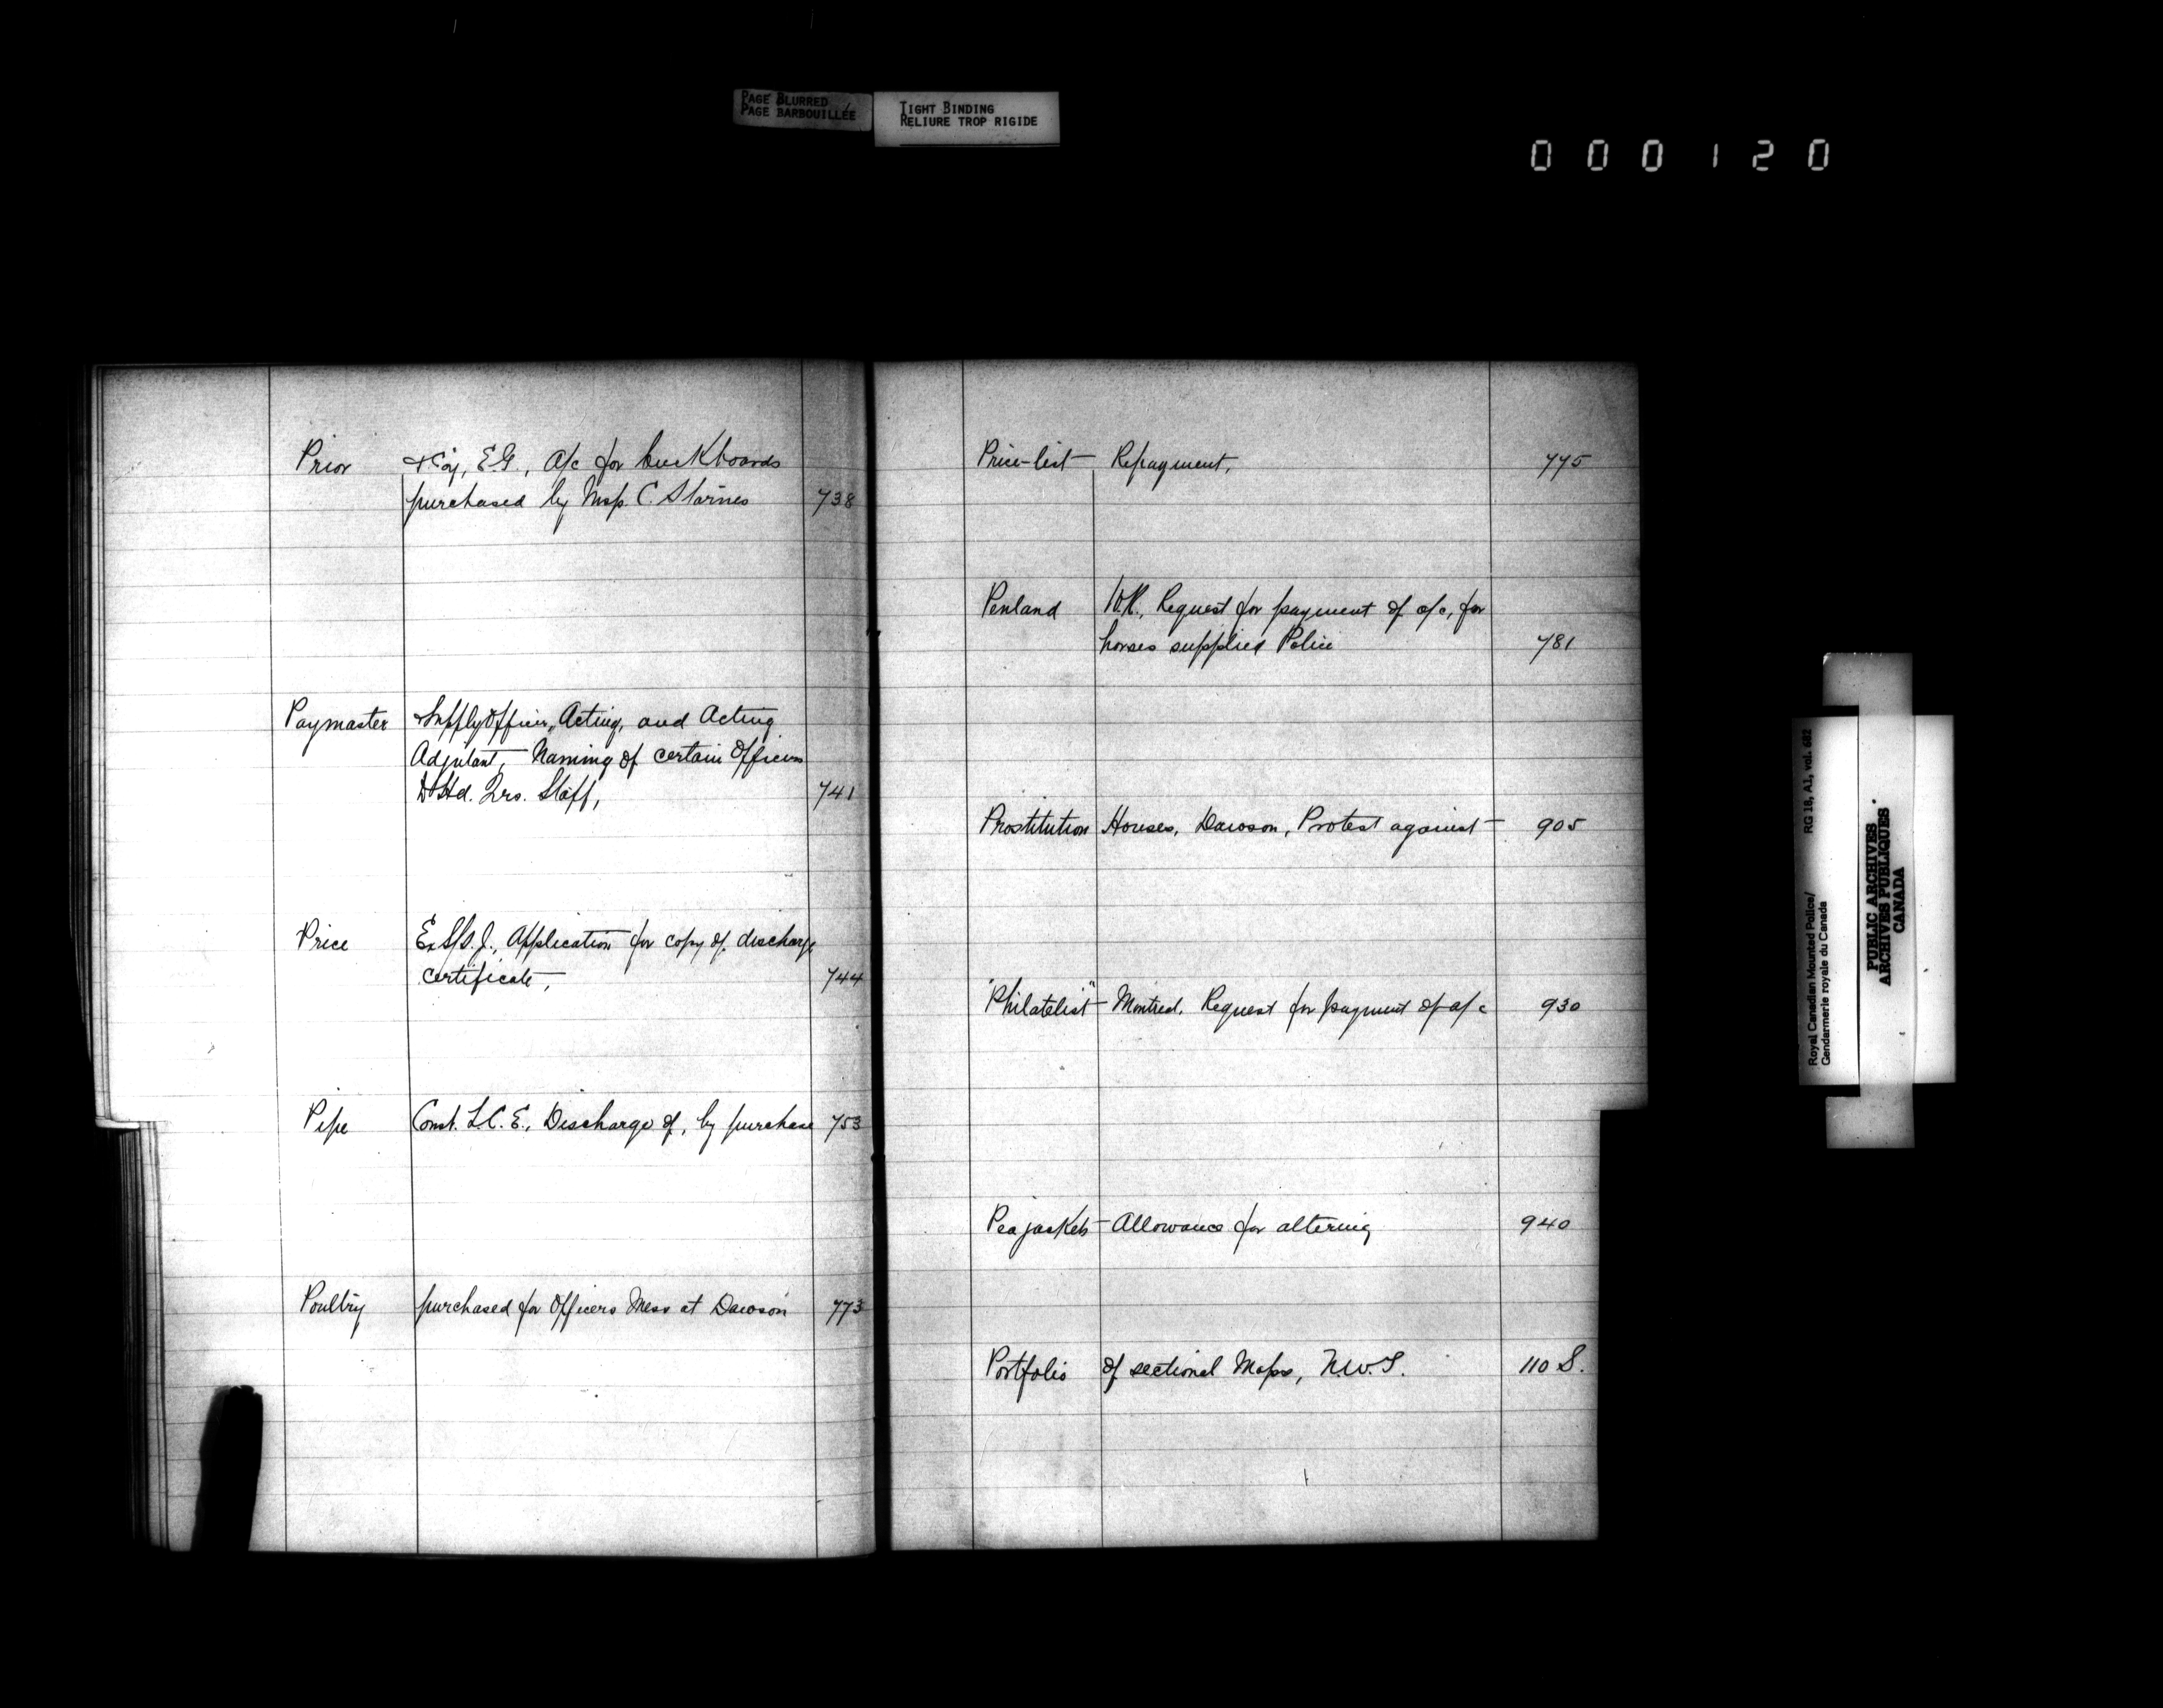 PAGE BLURRED
PAGE BARBOUILLÉE
TIGHT BINDING
RELIURE TROP RIGIDE
000120
Prior & Coy, E.G., a/c for buckboards
purchased by Insp. C. Starnes 738
Paymaster Supply Officer, Acting, and Acting
Adjutant, Naming of certain Officers
Hd. Qrs. Staff, 741
Price Ex S/S. J., Application for copy of discharge
certificate, 744
Pipe Const. L.C.E., Discharge of, by purchase 753
Poultry purchased for Officers Mess at Dawson 773
Price-list Repayment, 775
Penland Request for payment of a/c, for
horses supplied Police 781
Prostitution Houses, Dawson, Protest against 905
"Philatelist" Montreal, Request for payment of a/c 930
Pea jackets Allowance for altering 940
Portfolio of sectional Maps, N.W.T. 110 S.
Royal Canadian Mounted Police/ RG 18, A1, vol. 682
Gendarmerie royale du Canada
PUBLIC ARCHIVES
ARCHIVES PUBLIQUES
CANADA